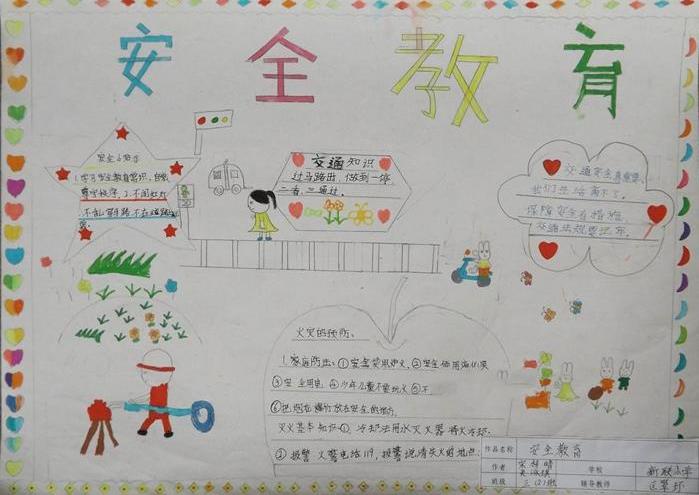 安全教育
安全小知识
1.学习安全教育常识，自觉
遵守秩序，2.不闯红灯
交通知识
过马路出，做到一停
二看，三通过。
交通安全真重要，
我们生活离不了。
保障安全有措施，
交通法规要记牢。
火灾的预防、
1.家庭防止：①安全使用炉火，②安全使用液化气
③安全用电，④少年儿童不要玩火⑤不
灭火基本知识：①、冷却法用水灭火器将火冷却，
②报警火警电话119，报警说清失火的地点
作品名称 安全教育
作者 学校
班级 三(2)班 辅导教师